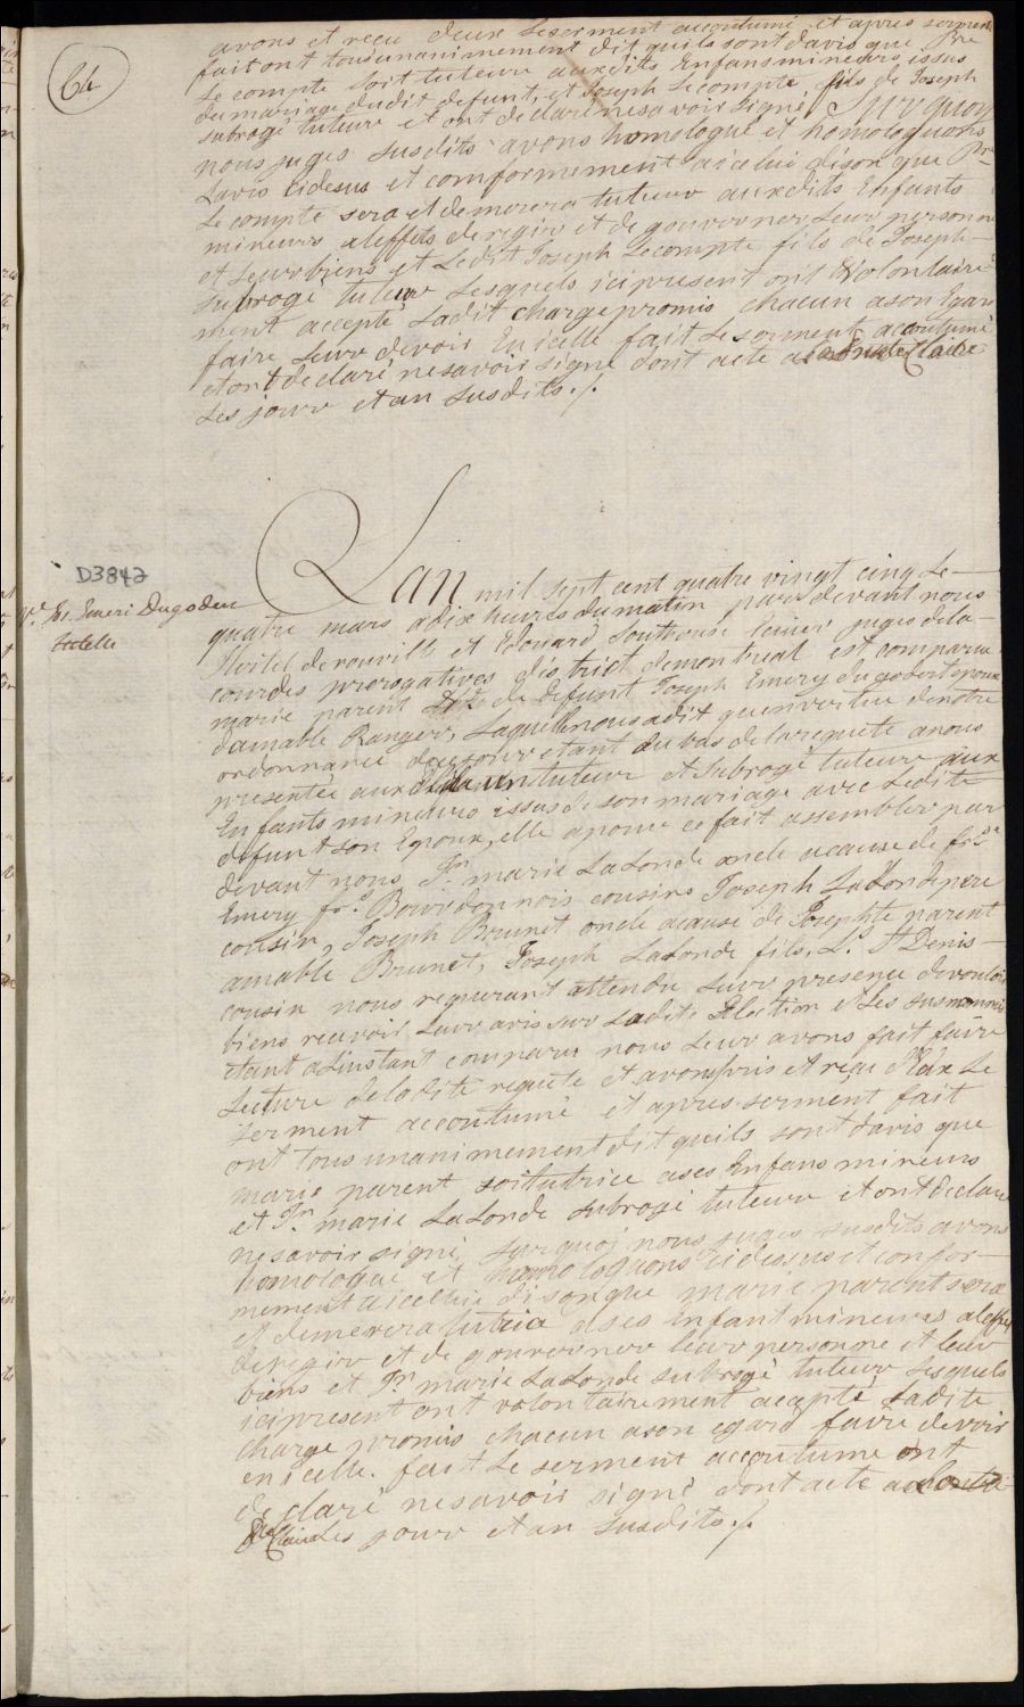 64
avons et reçu deux leserment accoutumé et apres serment
faitont tousunanimement dit quils sont davis que Pre
Le compte soit tuteur auxdits Enfansmineurs issus
du mariage dudit defunt, et Joseph Lecompte fils de Joseph
subrogé tuteur et ont declaré nesavoir signé, Surquoy
nous juges susdits avons homologué et homologuons
Lavis cidesus et comformement aicelui dison que Pre
Le compte sera et demeurera tuteur auxdits Enfants
mineurs aleffets deregir et de gouverner Leur personne
et Leurbiens et Ledit Joseph Lecompte fils de Joseph
subrogé tuteur Lesquels icipresent ont volontaire
ment accepté Ladit charge promis chacun ason Egard
faire Leur devoir Enicelle fait Le serment accoutumé
etont declaré nesavoir signé dont acte a Claire
Les jour et an susdits ./.
D3842
Jh. Emeri Dugodeu
tutelle
Lan mil sept cent quatre vingt cinq Le
quatre mars adix heures dumatin par devant nous
Hertel derouville et Edouard Southouse Ecuier juges dela
courdes prerogatives district demontreal est comparue
marie parent de defunt Joseph Emery dugodert epouse
damable Ranger, Laquellenousadit quenvertue denotre
ordonnance decejour etant aubas delarequete anous
presentée auxfins un tuteur et Subrogé tuteur aux
Enfants mineurs issusde son mariage avec Ledit
defunt son Epoux, elle apour ce fait assembler par
devant nous, Jn marie LaLonde oncle acause de
Emery frs Bourdonnois cousins Joseph LaLonde pere
cousin, Joseph Brunet oncle acause de Josephte parent
amable Brunet, Joseph LaLonde fils, Ls St Denis
cousin nous requerant attendu Leur presence devouloir
biens recevoir Leur avis sur Ladite Election et Les susnommés
etant alinstant comparu nous Leur avons fait faire
Lecture deladite requete et avonspris et reçu deux Le
serment accoutumé et apres serment fait
ont tous unanimement dit quils sont davis que
marie parent soitutrice ases Enfans mineurs
et Jn marie LaLonde subrogé tuteur et ont declaré
nesavoir signé, surquoi nous juges susdits avons
homologué et homologuons cidessus et confor
mement aicellui disonque marie parent sera
et demeurera tutrice ases Enfant mineurs aleffet
deregir et de gouverner leur personne et leur
biens et Jn marie LaLonde subrogé tuteur Lesquels
icipresent ont volontairement accepté Ladite
charge promis chacun ason egard faire devoir
enicelle. fait Le serment accoutumé ont
declaré nesavoir signé dont acte a
Claire Les jour et an susdits ./.